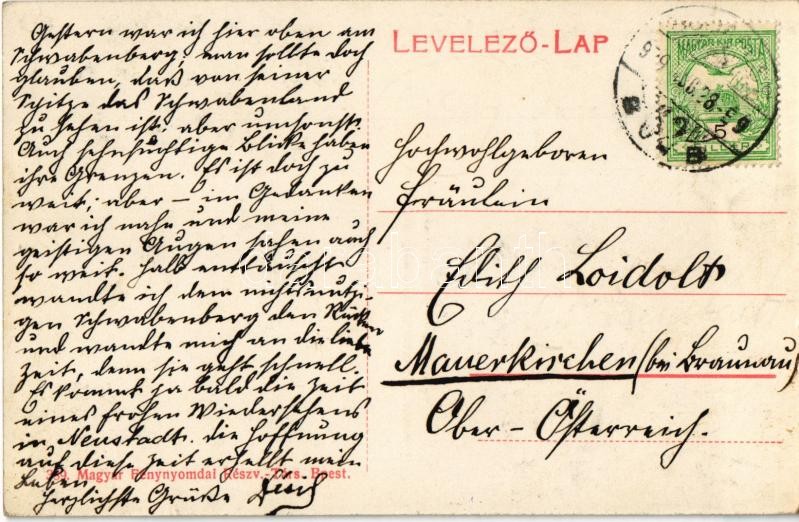 Gestern war ich hier oben am
Schwabenberg; man sollte doch
glauben, daß von seiner
Spitze das Schwabenland
zu sehen ist; aber umsonst.
Auch sehnsüchtige Blicke haben
ihre Grenzen. Es ist doch zu
weit; aber – im Gedanken
war ich nahe und meine
geistigen Augen sahen auch
so weit. Halb enttäuscht
wandte ich dem nichtsnutzi-
gen Schwabenberg den Rücken
und wandte mich an die liebe
Zeit, denn sie geht schnell.
Es kommt ja bald die Zeit
eines frohen Wiedersehens
in Neustadt. die Hoffnung
auf diese Zeit erhellt mein
Leben
Herzlichste Grüße
389. Magyar Fénynyomdai Részv.-Társ. Bpest.
LEVELEZŐ-LAP
MAGYAR KIR. POSTA
5
Hochwohlgeboren
Fräulein
Edith Loidolt
Mauerkirchen (bei Braunau)
Ober-Österreich.